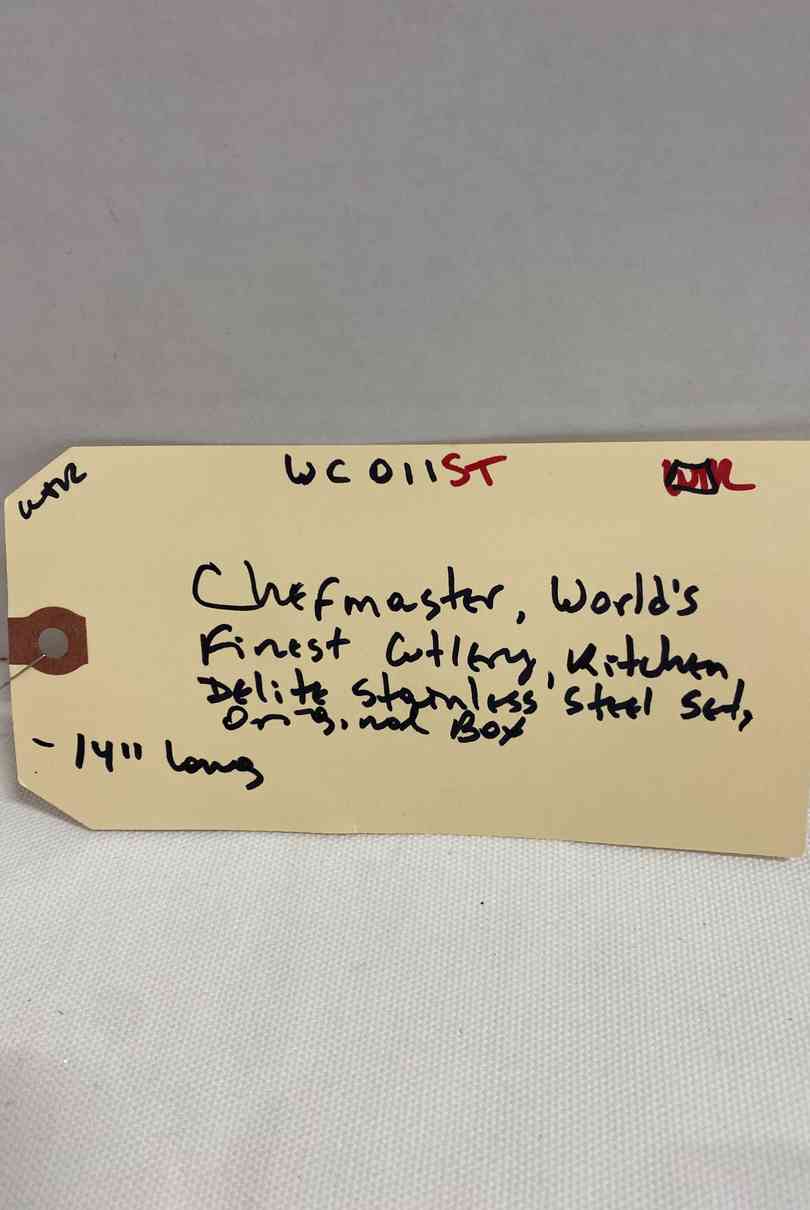 WC 011ST
Chefmaster, World's
Finest Cutlery, Kitchen
Delite Stainless Steel Set,
Original Box
- 14" long